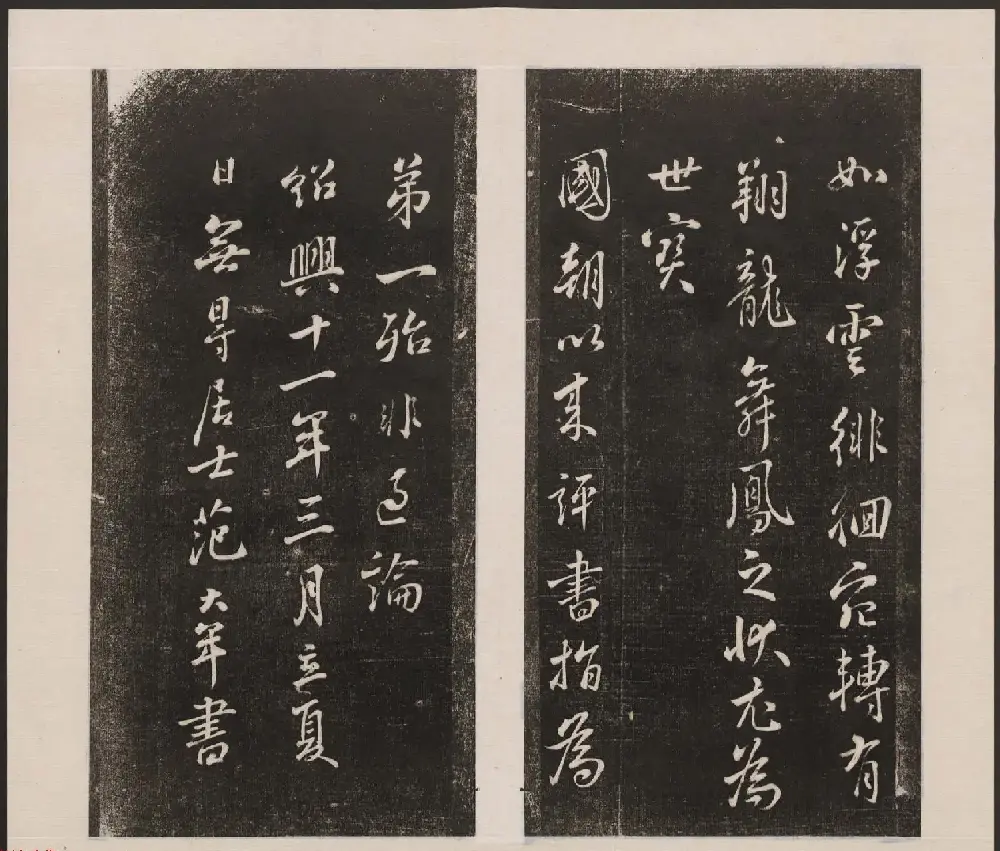 如浮雲徘徊宛轉有
翔龍舞鳳之狀尤為
世寶
國朝以来評書指為
第一殆非過論
紹興十一年三月立夏
日無㝵居士范大年書